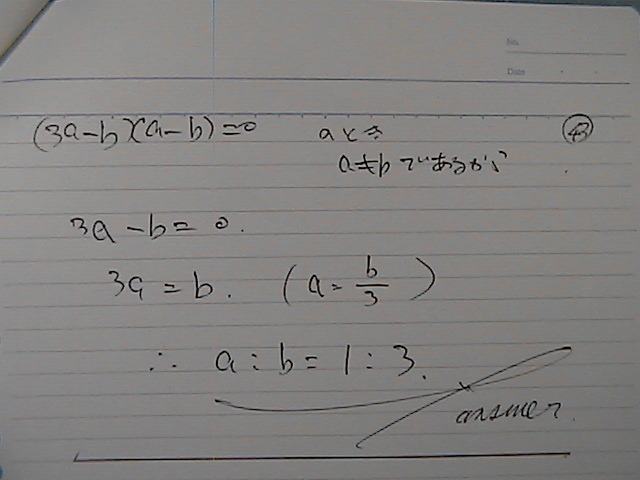 No.
Date
(3a-b)(a-b)=0 aとき ㊸
a≠bであるから
3a-b=0.
3a=b. (a=b/3)
∴ a:b=1:3.
answer.